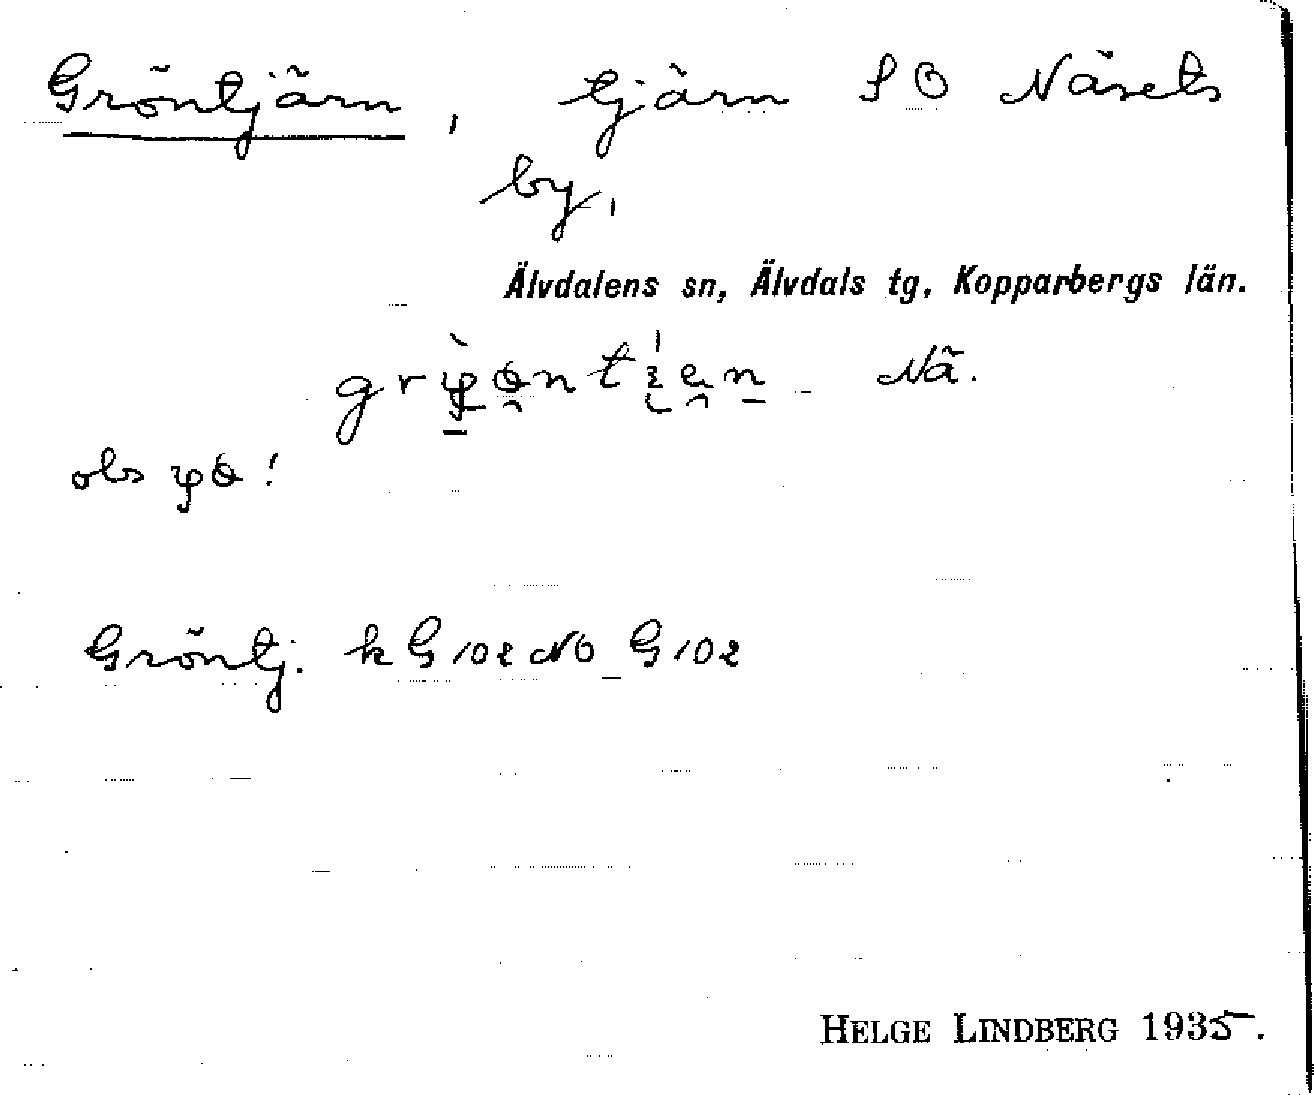 Gröntjärn, tjärn SO Näsets
by,
Älvdalens sn, Älvdals tg. Kopparbergs län.
Nä.
obs
Gröntj. k G 102 NO G 102
HELGE LINDBERG 1935.